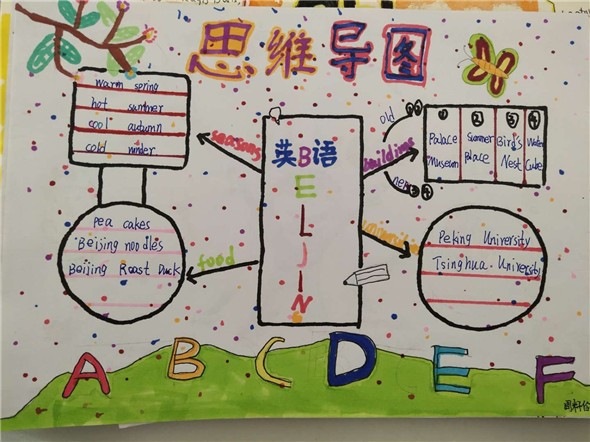 思维导图
warm spring
hot summer
cool autumn
cold winder
seasons
英B语
E
L
J
I
N
old ①②
buildings
new ③④
① ② ③ ④
Palace Summer Bird's Water
Museum Palace Nest Cube
pea cakes
Beijing noodles
Beijing Roast Duck
food
Peking University
Tsinghua University
A B C D E F